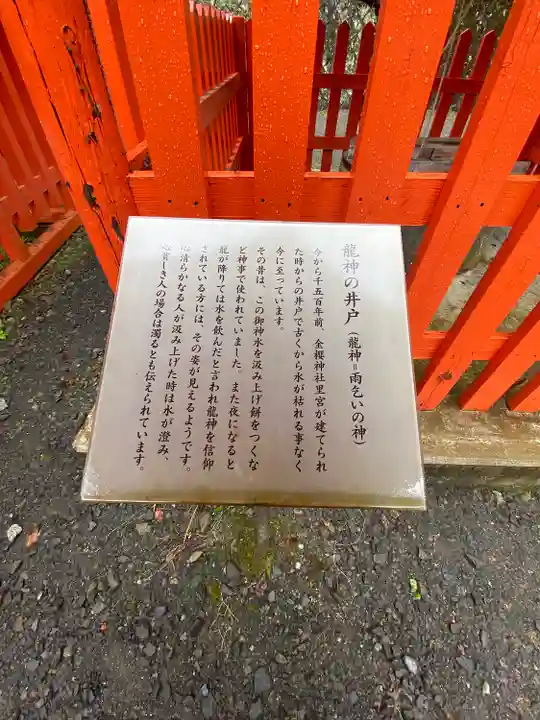 龍神の井戸（龍神＝雨乞いの神）
今から千五百年前、金櫻神社里宮が建てられ
た時からの井戸で古くから水が枯れる事なく
今に至っています。
その昔は、この御神水を汲み上げ餅をつくな
ど神事で使われていました。また夜になると
龍が降りては水を飲んだと言われ龍神を信仰
されている方には、その姿が見えるようです。
心清らかなる人が汲み上げた時は水が澄み、
しき人の場合は濁るとも伝えられています。